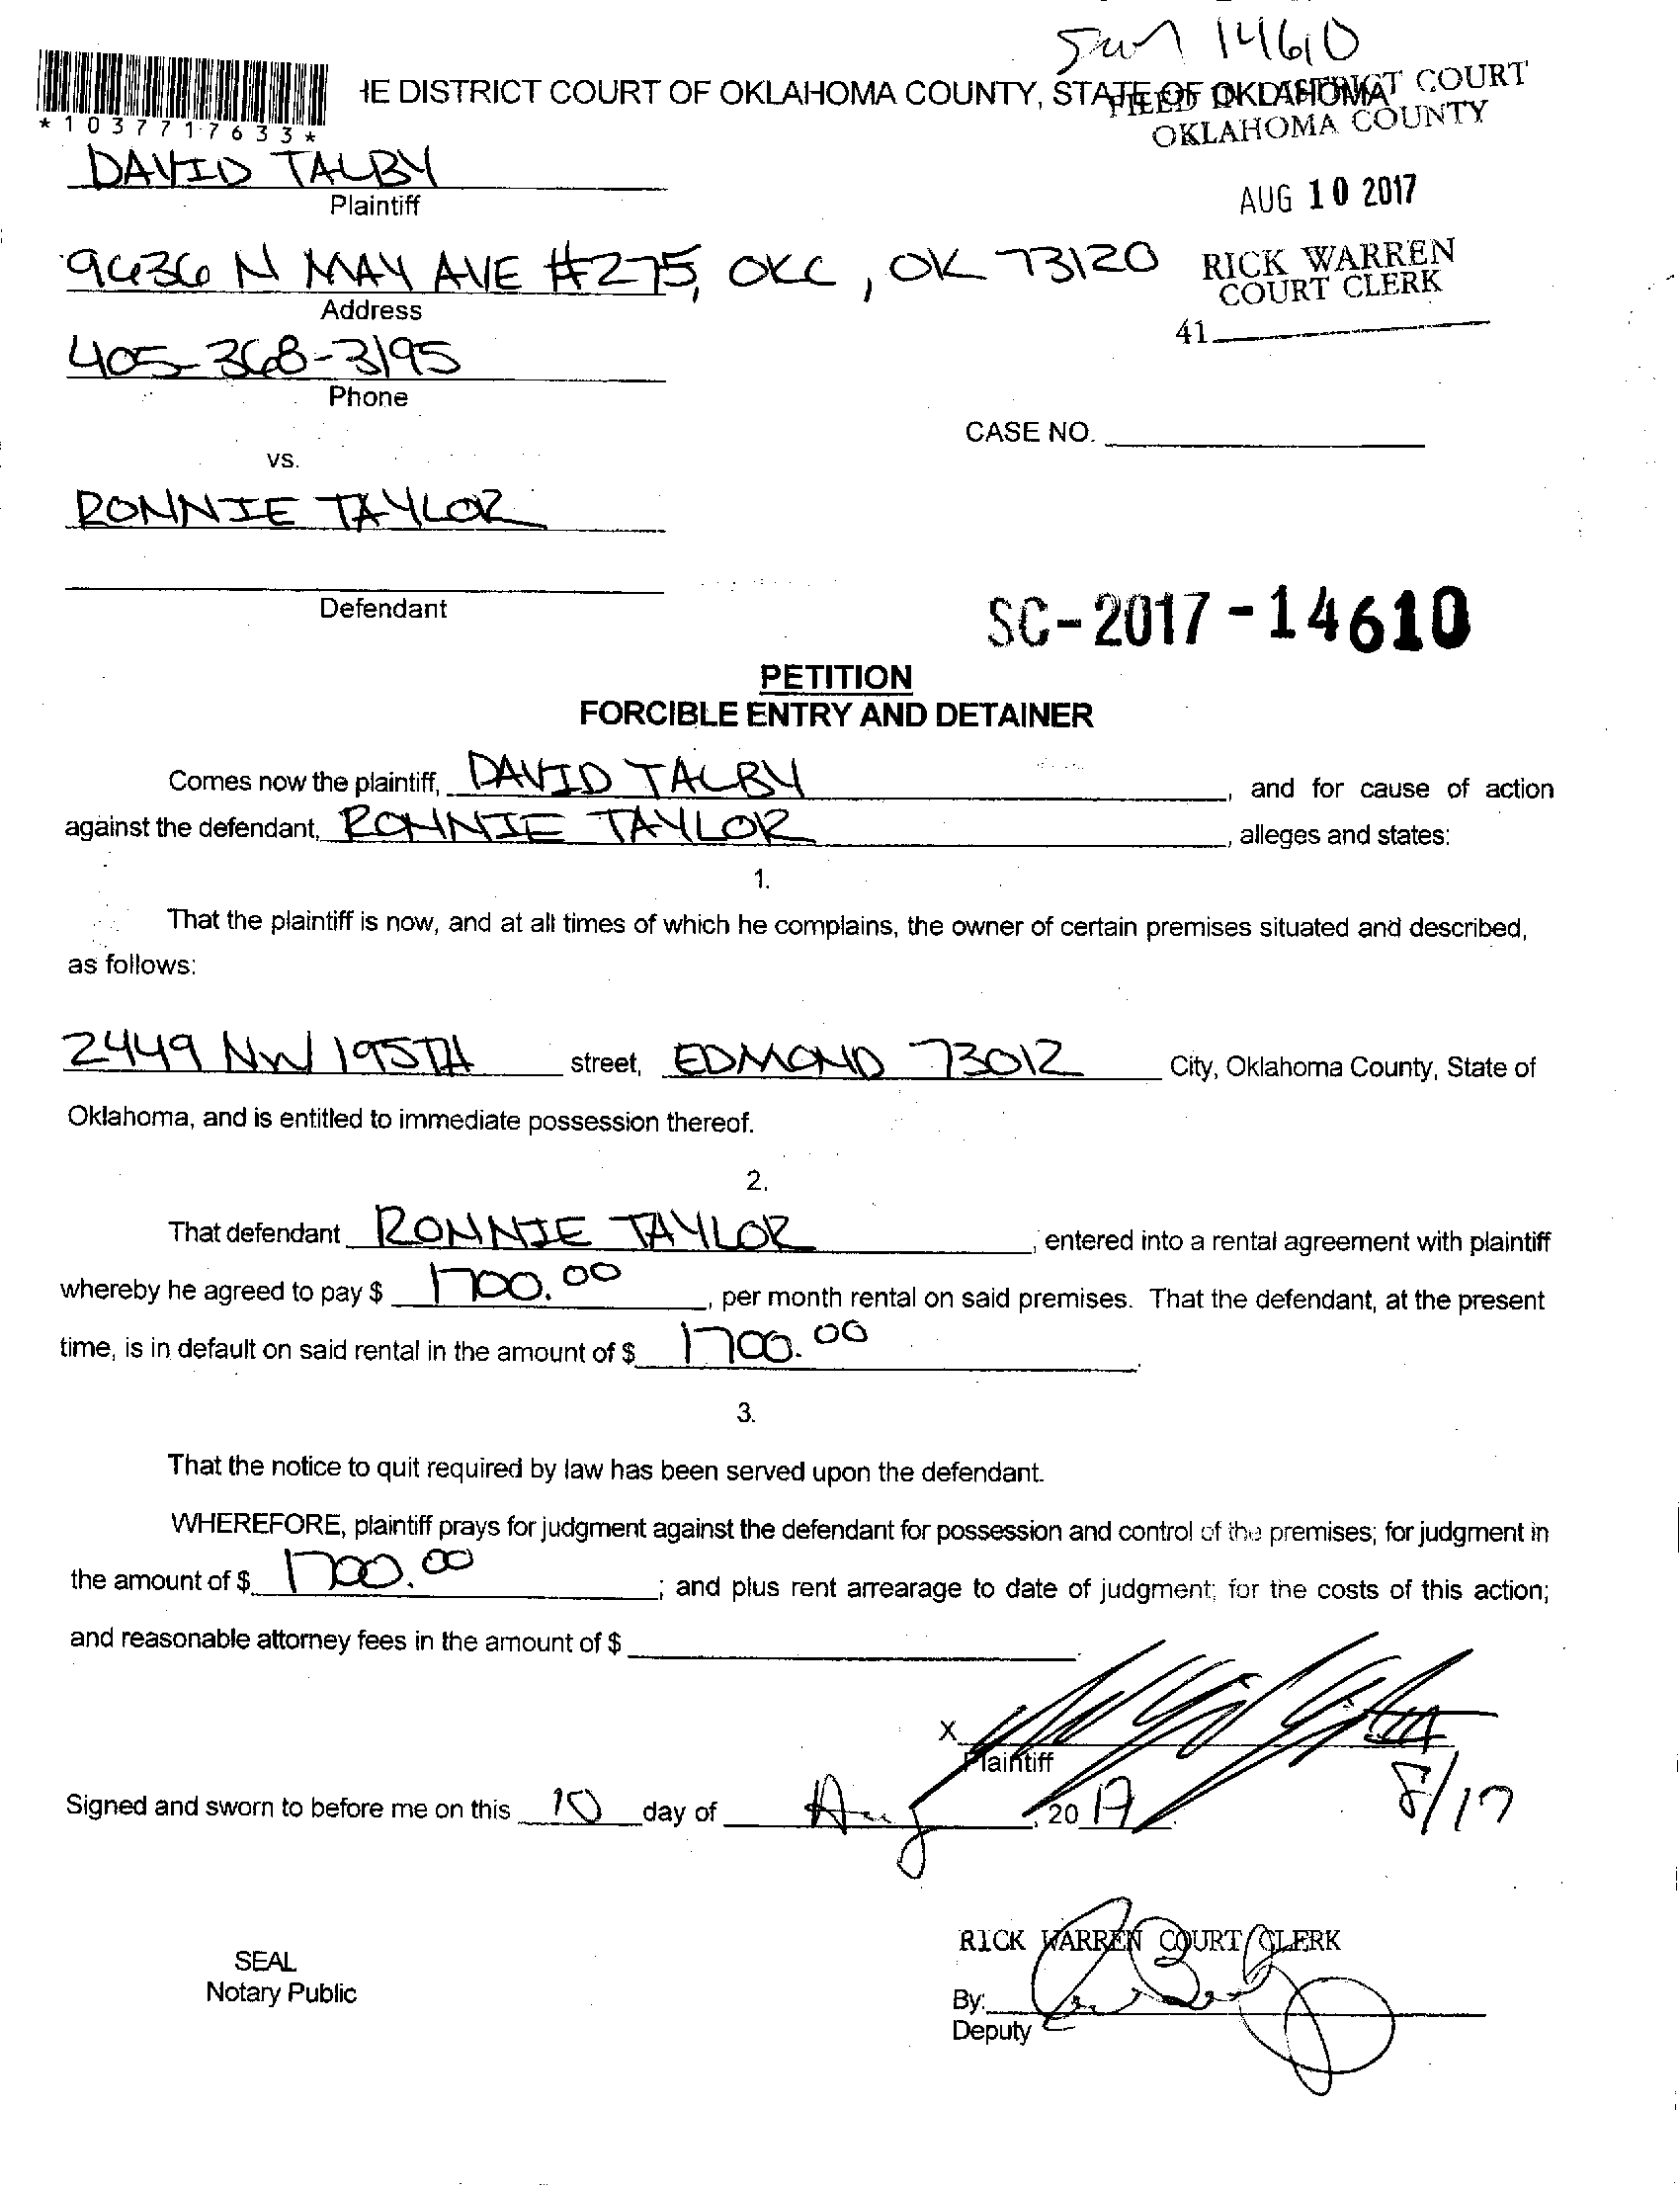 14610
IE DISTRICT COURT OF OKLAHOMA COUNTY, STATE OF OKLAHOMA
FILED IN DISTRICT COURT
OKLAHOMA COUNTY
*1037717633*
DAVID TALBY
Plaintiff
AUG 10 2017
9636 N MAY AVE #275, OKC, OK 73120
Address
RICK WARREN
COURT CLERK
41
405-368-3195
Phone
CASE NO.
vs.
RONNIE TAYLOR
Defendant
SC-2017-14610
PETITION
FORCIBLE ENTRY AND DETAINER
Comes now the plaintiff, DAVID TALBY, and for cause of action
against the defendant, RONNIE TAYLOR, alleges and states:
1.
That the plaintiff is now, and at all times of which he complains, the owner of certain premises situated and described,
as follows:
2449 NW 195TH street, EDMOND 73012 City, Oklahoma County, State of
Oklahoma, and is entitled to immediate possession thereof.
2.
That defendant RONNIE TAYLOR, entered into a rental agreement with plaintiff
whereby he agreed to pay $ 1700.00, per month rental on said premises. That the defendant, at the present
time, is in default on said rental in the amount of $ 1700.00.
3.
That the notice to quit required by law has been served upon the defendant.
WHEREFORE, plaintiff prays for judgment against the defendant for possession and control of the premises; for judgment in
the amount of $ 1700.00; and plus rent arrearage to date of judgment; for the costs of this action;
and reasonable attorney fees in the amount of $
X
Plaintiff
8/17
Signed and sworn to before me on this 10 day of Aug, 2017.
RICK WARREN COURT CLERK
SEAL
Notary Public
By:
Deputy